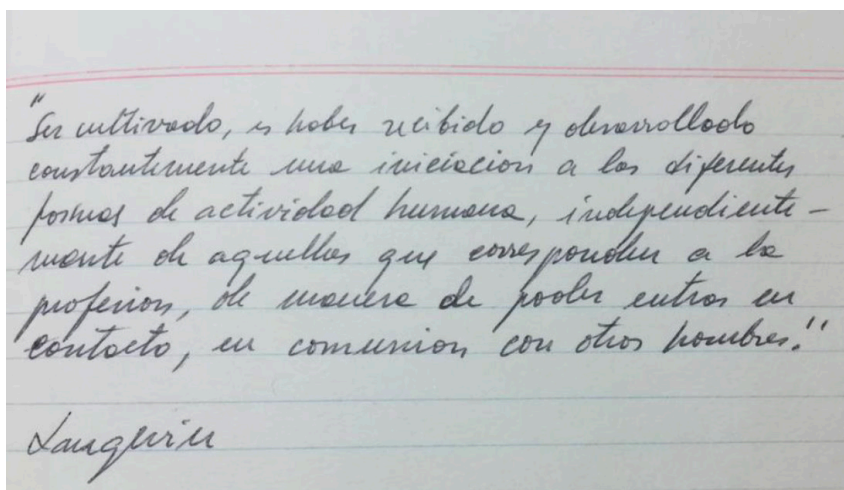 "Ser cultivado, es haber recibido y desarrollado
constantemente una iniciación a las diferentes
formas de actividad humana, independiente-
mente de aquellas que corresponden a la
profesion, de manera de poder entrar en
contacto, en comunion con otros hombres."
Langevin